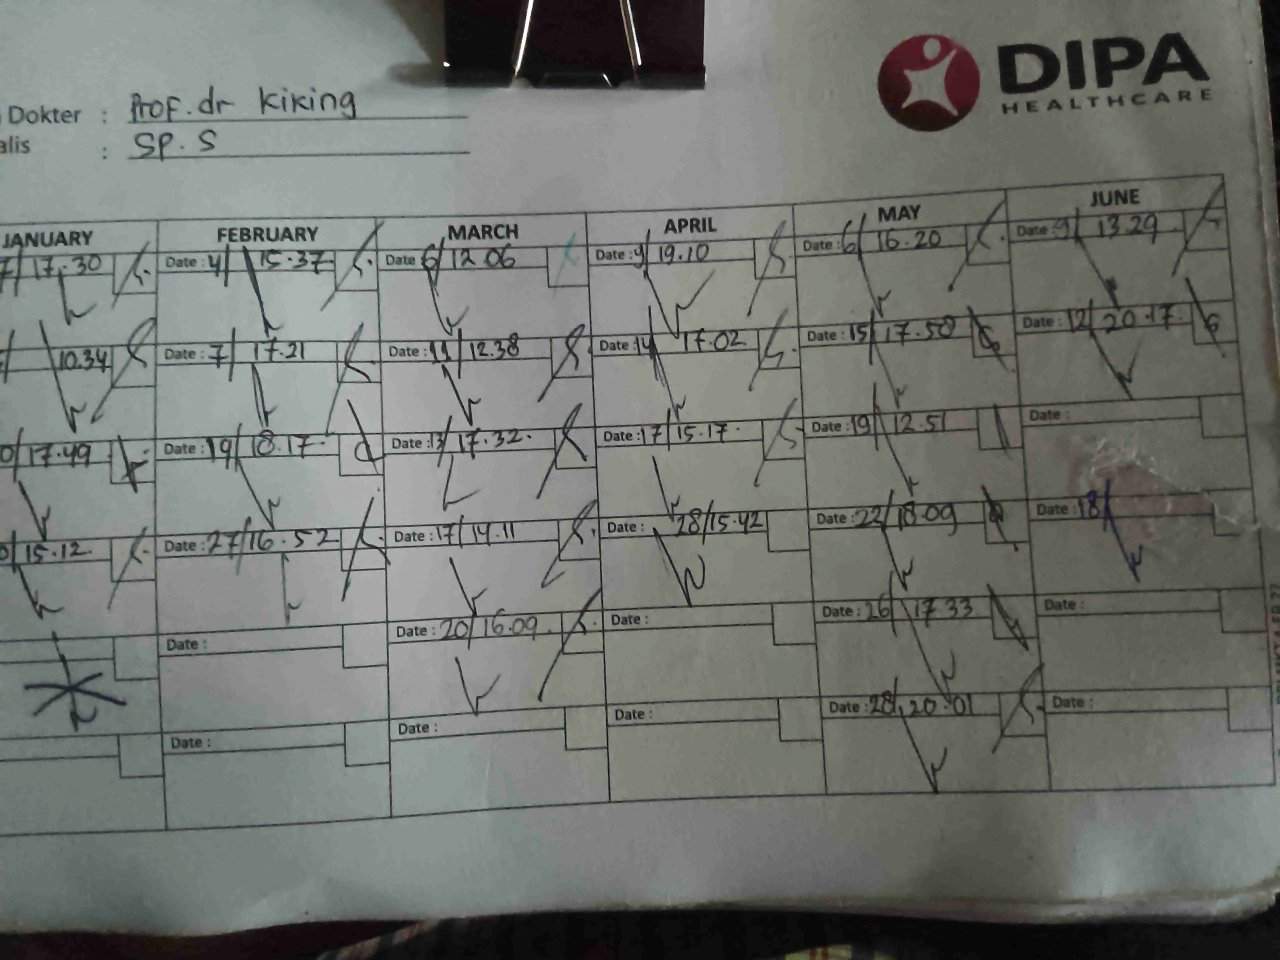 DIPA
HEALTHCARE
Dokter : Prof. dr Kiking
alis : SP. S
JANUARY FEBRUARY MARCH APRIL MAY JUNE
7/ 17.30 Date : 4/ 15.37 Date 6/ 12 06 Date : 9/ 19.10 Date : 6/ 16.20 Date : 9/ 13.29
10.34 Date : 7/ 17.21 Date : 11/ 12.38 Date : 14/ 17.02 Date : 15/ 17.50 Date : 12/ 20.17.
0/17.49 Date : 19/ 18.17. Date : 13/ 17.32. Date : 17/ 15.17. Date : 19/ 12.51 Date :
0/15.12. Date : 27/16.52 Date : 17/ 14.11 Date : 28/15.42 Date : 22/ 18.09 Date : 18/
Date : Date : 20/ 16.09. Date : Date : 26/ 17.33 Date :
Date : Date : Date : Date : 28/ 20.01 Date :